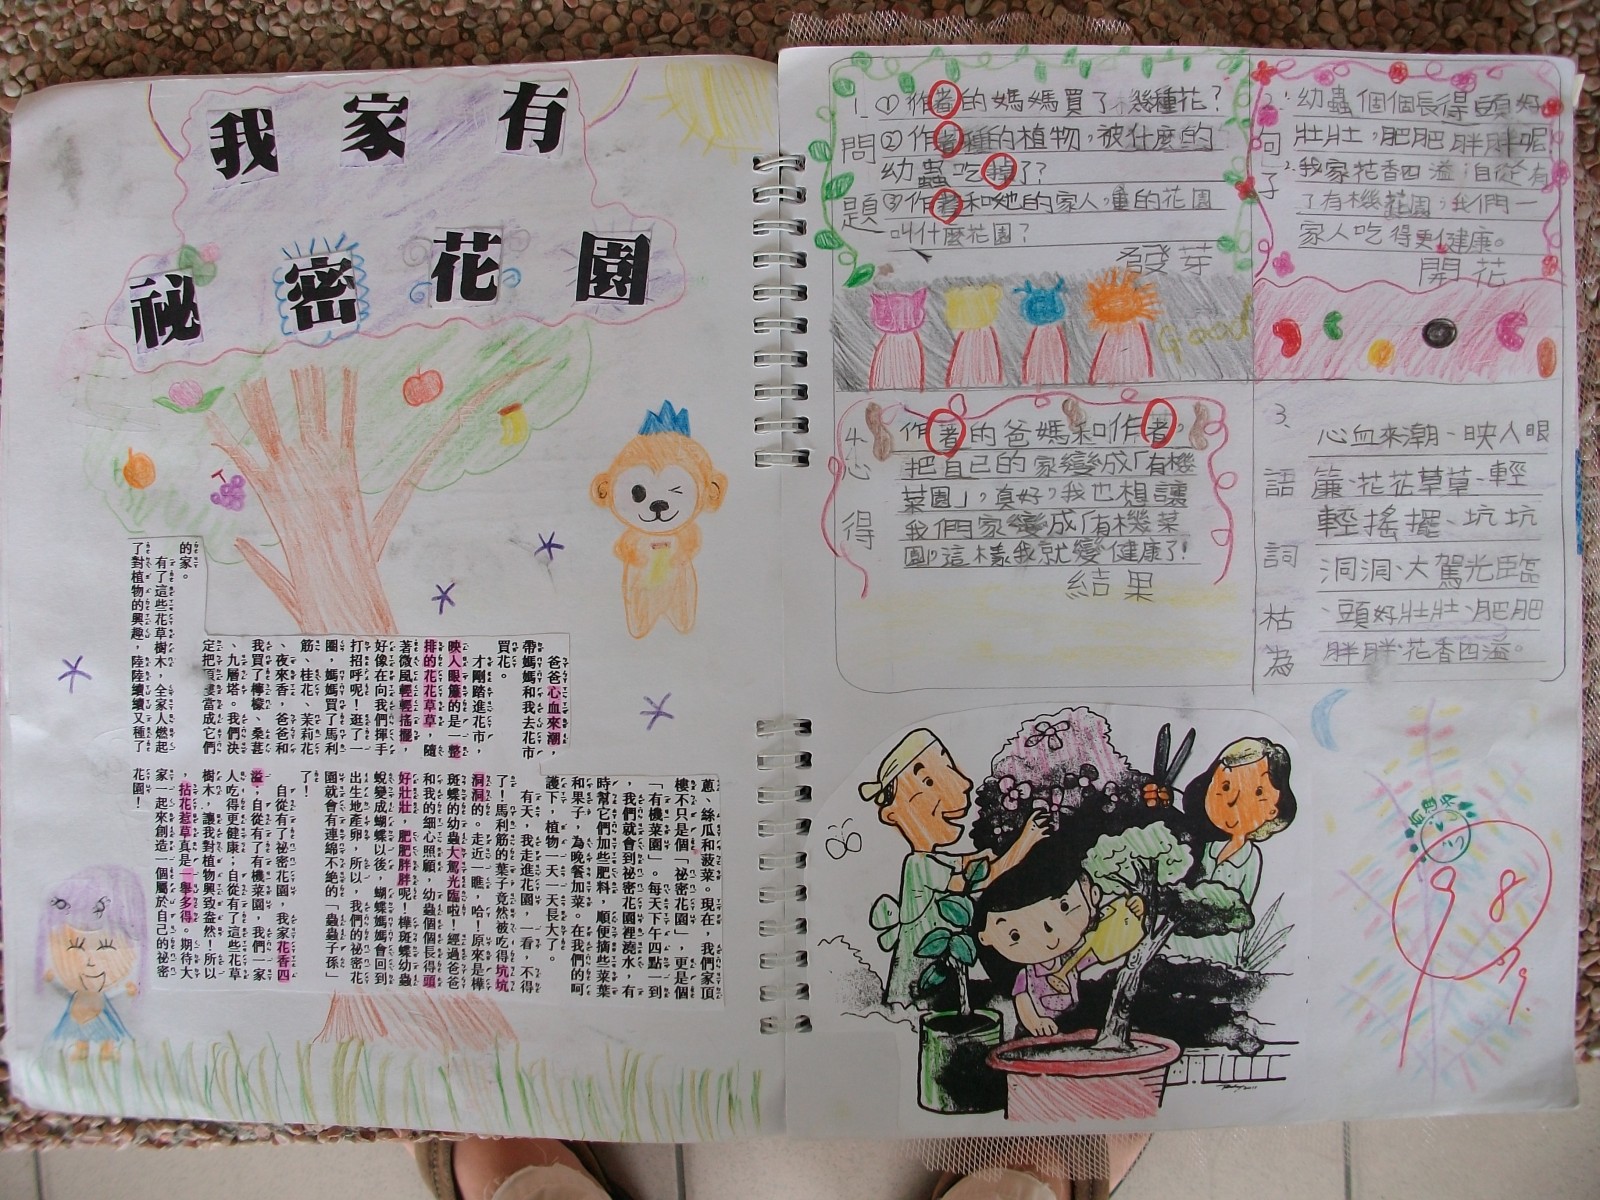 我家有
祕密花園
爸爸心血來潮，
帶媽媽和我去花市
買花。
才剛踏進花市，
映入眼簾的是一整
排的花花草草，隨
著微風輕輕搖擺，
好像在向我們揮手
打招呼呢！逛了一
圈，媽媽買了馬利
筋、桂花、茉莉花
、夜來香，爸爸和
我買了檸檬、桑葚
、九層塔。我們決
定把頂樓當成它們
的家。
有了這些花草樹木，全家人燃起
了對植物的興趣，陸陸續續又種了
蔥、絲瓜和菠菜。現在，我們家頂
樓不只是個「祕密花園」，更是個
「有機菜園」。每天下午四點一到
，我們就會到祕密花園裡澆水，有
時幫它們加些肥料，順便摘些菜葉
和果子，為晚餐加菜。在我們的呵
護下，植物一天一天長大了。
有天，我走進花園，一看，不得
了！馬利筋的葉子竟然被吃得坑坑
洞洞的。走近一瞧，哈！原來是樺
斑蝶的幼蟲大駕光臨啦！經過爸爸
和我的細心照顧，幼蟲個個長得頭
好壯壯，肥肥胖胖呢！樺斑蝶幼蟲
蛻變成蝴蝶以後，蝴蝶媽媽會回到
出生地產卵，所以，我們的祕密花
園就會有連綿不絕的「蟲蟲子孫」
了！
自從有了祕密花園，我家花香四
溢，自從有了有機菜園，我們一家
人吃得更健康；自從有了這些花草
樹木，讓我對植物興致盎然！所以
，拈花惹草真是一舉多得。期待大
家一起來創造一個屬於自己的祕密
花園！
1.問題
①作者的媽媽買了幾種花？
②作者種的植物，被什麼的
幼蟲吃掉了？
③作者和她的家人，種的花園
叫什麼花園？
發芽
Good
2.句子
1.幼蟲個個長得頭好
壯壯，肥肥胖胖呢！
2.我家花香四溢，自從有
了有機花園，我們一
家人吃得更健康。
開花
心得
作者的爸媽和作者，
把自己的家變成「有機
菜園」，真好，我也想讓
我們家變成「有機菜
園」，這樣我就變健康了！
結果
3.
語詞
心血來潮、映入眼
簾、花花草草、輕
輕搖擺、坑坑
洞洞、大駕光臨
、頭好壯壯、肥肥
胖胖、花香四溢。
98